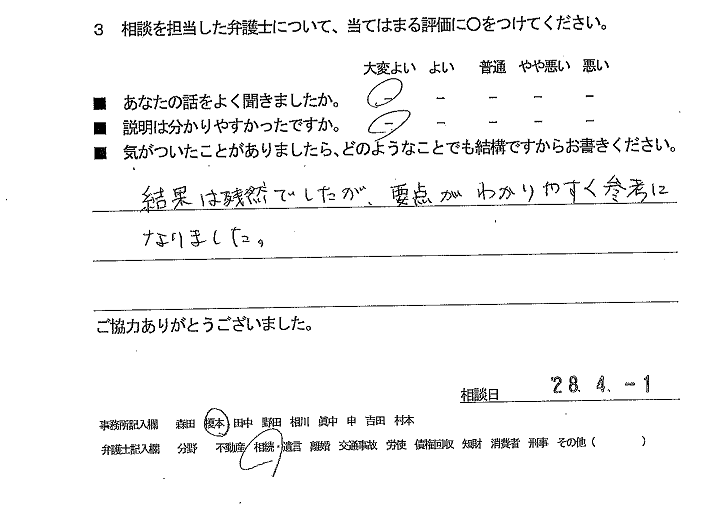 3 相談を担当した弁護士について、当てはまる評価に○をつけてください。
大変よい よい 普通 やや悪い 悪い
■ あなたの話をよく聞きましたか。 - - - - -
■ 説明は分かりやすかったですか。 - - - - -
■ 気がついたことがありましたら、どのようなことでも結構ですからお書きください。
結果は残念でしたが、要点がわかりやすく参考に
なりました。
ご協力ありがとうございました。
相談日 '28. 4. -1
事務所記入欄 森田 榎本 田中 野田 相川 眞中 申 吉田 村本
弁護士記入欄 分野 不動産 相続・遺言 離婚 交通事故 労使 債権回収 知財 消費者 刑事 その他 ( )